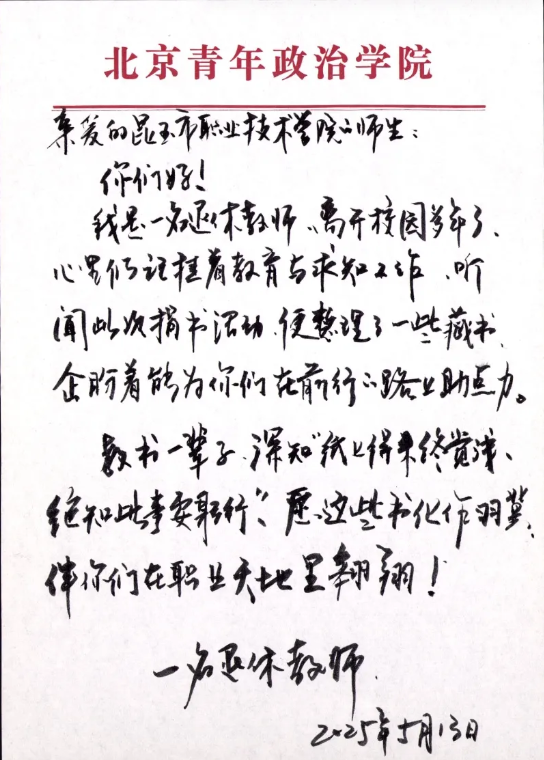 北京青年政治学院
亲爱的昆玉市职业技术学院的师生：
你们好！
我是一名退休教师、离开校园多年了、
心里仍记挂着教育与求知工作、听
闻此次捐书活动、便整理了一些藏书、
企盼着能为你们在前行的路上助点力。
教书一辈子、深知“纸上得来终觉浅、
绝知此事要躬行”、愿这些书化作羽冀、
伴你们在职业天地里翱翔！
一名退休教师
2025年5月13日